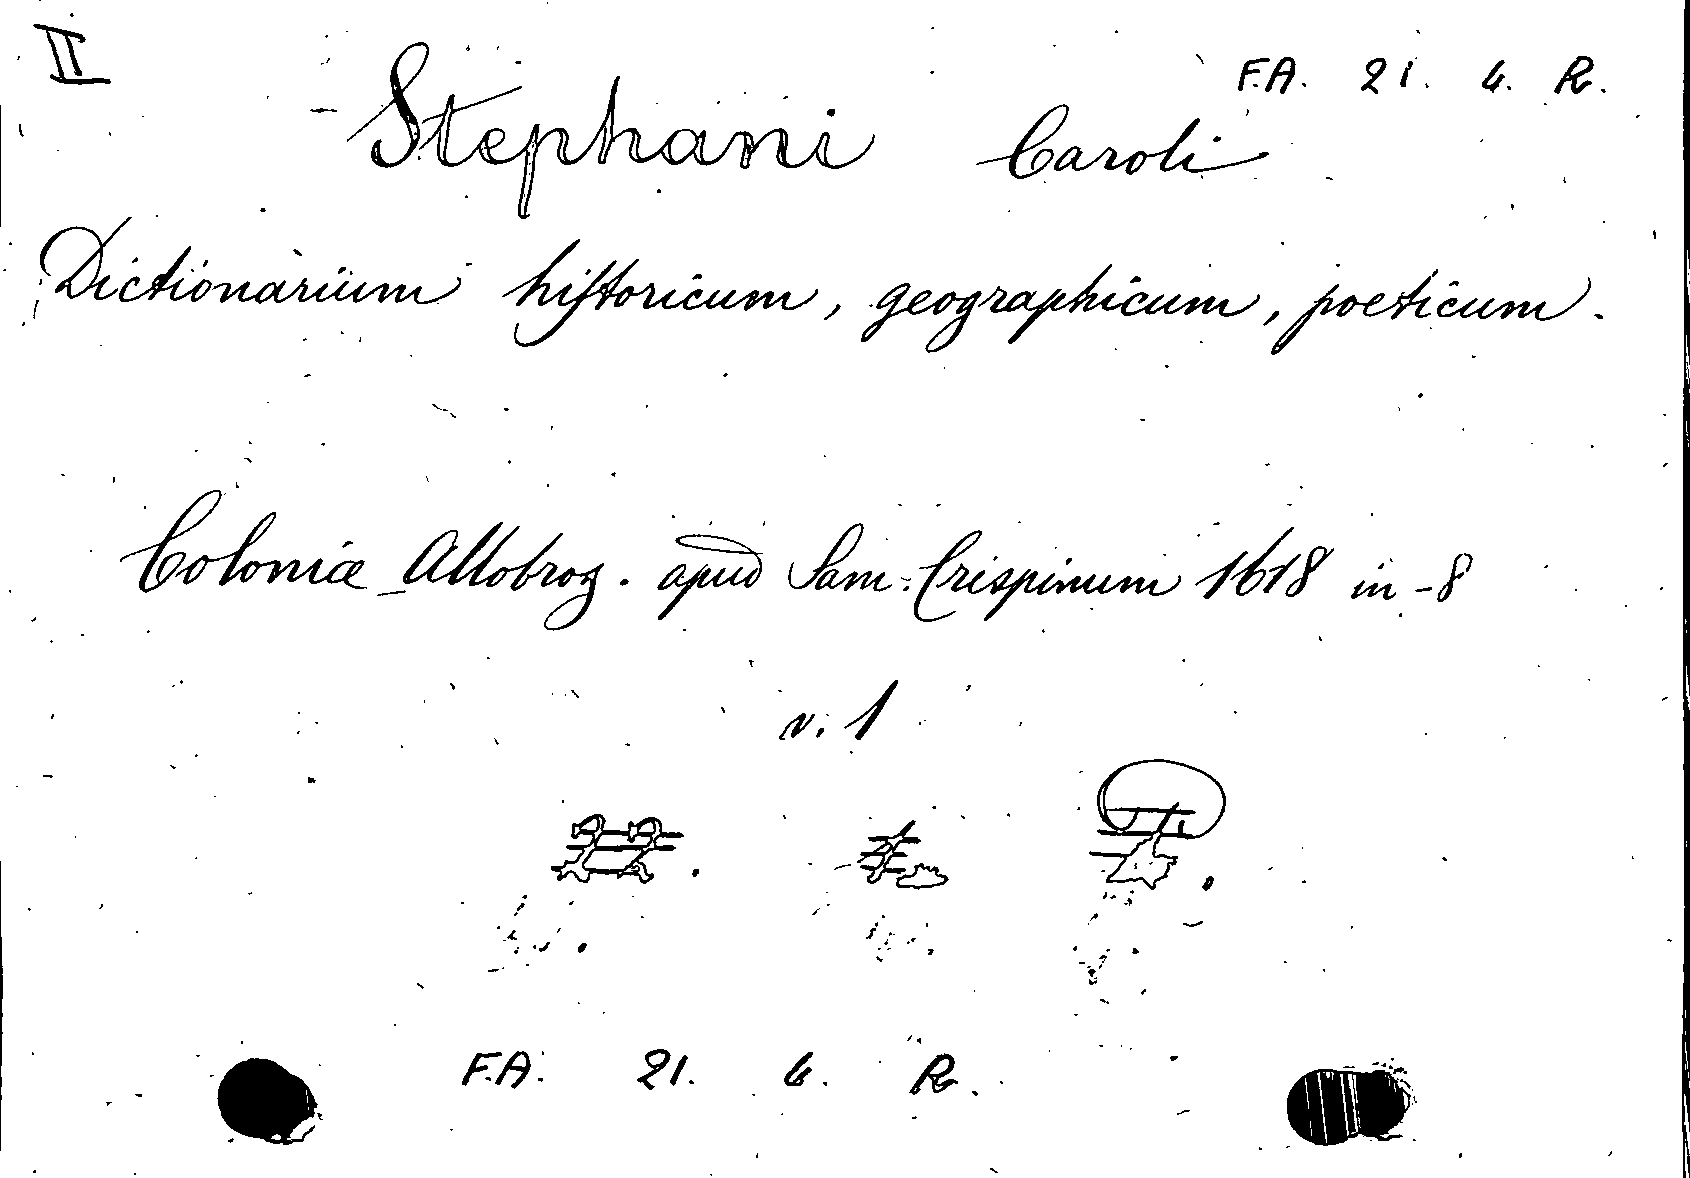 II
F.A. 21. 4. R.
Stephani Caroli
Dictionarium historicum, geographicum, poeticum.
Coloniæ Allobrog. apud Sam. Crispinum 1618 in-8
v. 1
F.A. 21. 4. R.